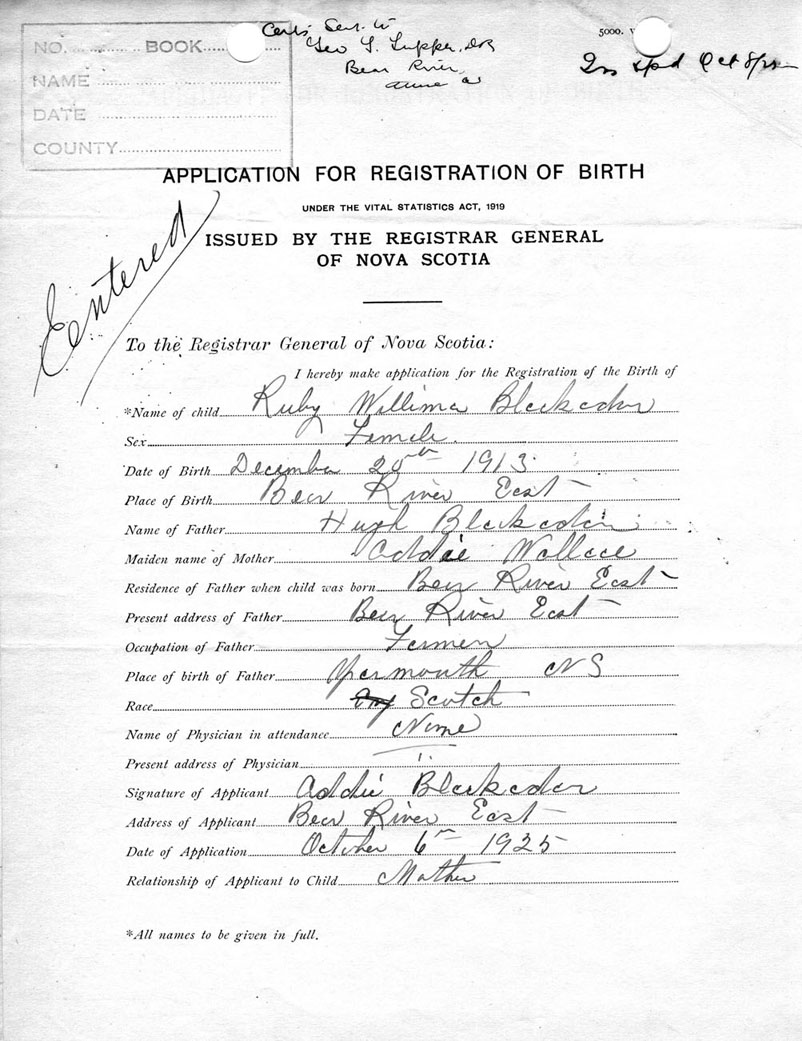 NO. BOOK
NAME
DATE
COUNTY
Geo
Bear River
5000.
Oct 8/25
Entered
APPLICATION FOR REGISTRATION OF BIRTH
UNDER THE VITAL STATISTICS ACT, 1919
ISSUED BY THE REGISTRAR GENERAL
OF NOVA SCOTIA
To the Registrar General of Nova Scotia:
I hereby make application for the Registration of the Birth of
*Name of child Ruby Willima Blackadar
Sex Female.
Date of Birth December 20th 1913.
Place of Birth Bear River East
Name of Father Hugh Blackadar
Maiden name of Mother Addie Wallace
Residence of Father when child was born Bear River East
Present address of Father Bear River East
Occupation of Father Farmer
Place of birth of Father Yarmouth NS
Race Scotch
Name of Physician in attendance None
Present address of Physician
Signature of Applicant Addie Blackadar
Address of Applicant Bear River East
Date of Application October 6th 1925
Relationship of Applicant to Child Mother
*All names to be given in full.